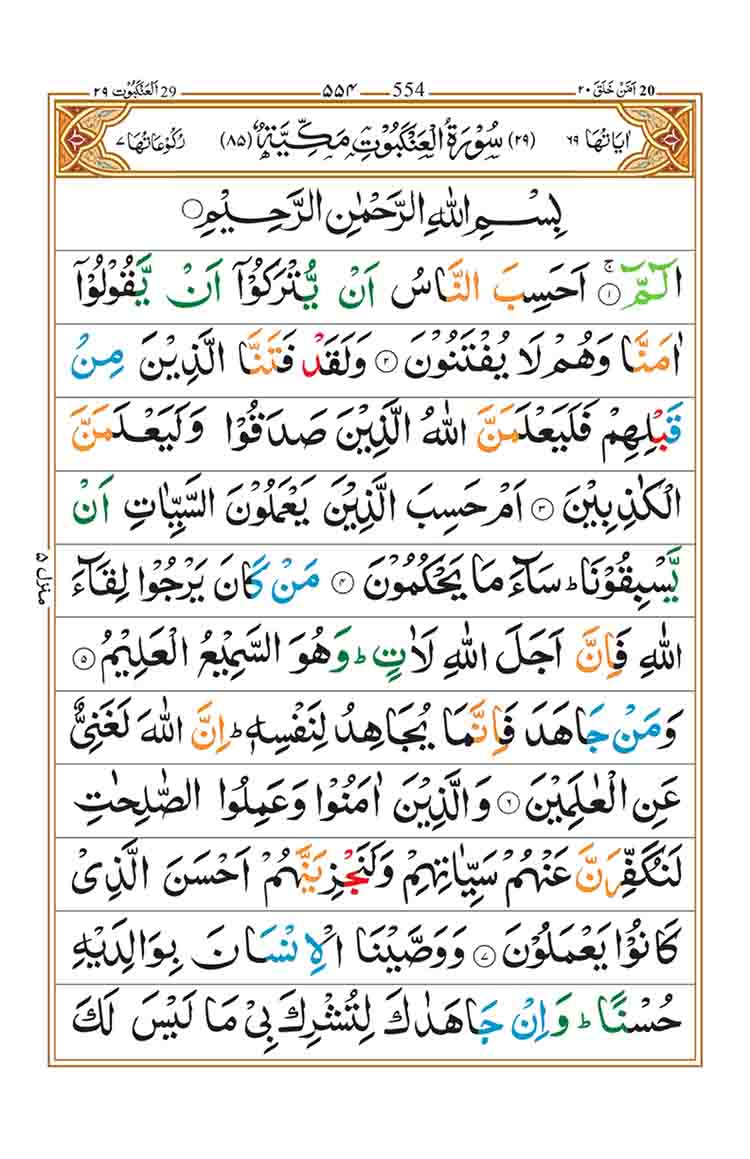 20 اَمَّنْ خَلَقَ ۲۰ 554 ۵۵۴ 29 اَلْعَنْكَبُوْت ۲۹
اٰيَاتُهَا ۶۹ (۲۹) سُوْرَةُ الْعَنْكَبُوْتِ مَكِّيَّةٌ (۸۵) رُكُوْعَاتُهَا ۷
بِسْمِ اللّٰهِ الرَّحْمٰنِ الرَّحِيْمِ ۝
الٓمّٓ ۝۱ ۚ اَحَسِبَ النَّاسُ اَنْ يُّتْرَكُوْٓا اَنْ يَّقُوْلُوْٓا
اٰمَنَّا وَهُمْ لَا يُفْتَنُوْنَ ۝۲ وَلَقَدْ فَتَنَّا الَّذِيْنَ مِنْ
قَبْلِهِمْ فَلَيَعْلَمَنَّ اللّٰهُ الَّذِيْنَ صَدَقُوْا وَلَيَعْلَمَنَّ
الْكٰذِبِيْنَ ۝۳ اَمْ حَسِبَ الَّذِيْنَ يَعْمَلُوْنَ السَّيِّاٰتِ اَنْ
يَّسْبِقُوْنَا ؕ سَآءَ مَا يَحْكُمُوْنَ ۝۴ مَنْ كَانَ يَرْجُوْا لِقَآءَ
اللّٰهِ فَاِنَّ اَجَلَ اللّٰهِ لَاٰتٍ ؕ وَهُوَ السَّمِيْعُ الْعَلِيْمُ ۝۵
وَمَنْ جَاهَدَ فَاِنَّمَا يُجَاهِدُ لِنَفْسِهٖ ؕ اِنَّ اللّٰهَ لَغَنِيٌّ
عَنِ الْعٰلَمِيْنَ ۝۶ وَالَّذِيْنَ اٰمَنُوْا وَعَمِلُوا الصّٰلِحٰتِ
لَنُكَفِّرَنَّ عَنْهُمْ سَيِّاٰتِهِمْ وَلَنَجْزِيَنَّهُمْ اَحْسَنَ الَّذِيْ
كَانُوْا يَعْمَلُوْنَ ۝۷ وَوَصَّيْنَا الْاِنْسَانَ بِوَالِدَيْهِ
حُسْنًا ؕ وَاِنْ جَاهَدٰكَ لِتُشْرِكَ بِيْ مَا لَيْسَ لَكَ
منزل ۵